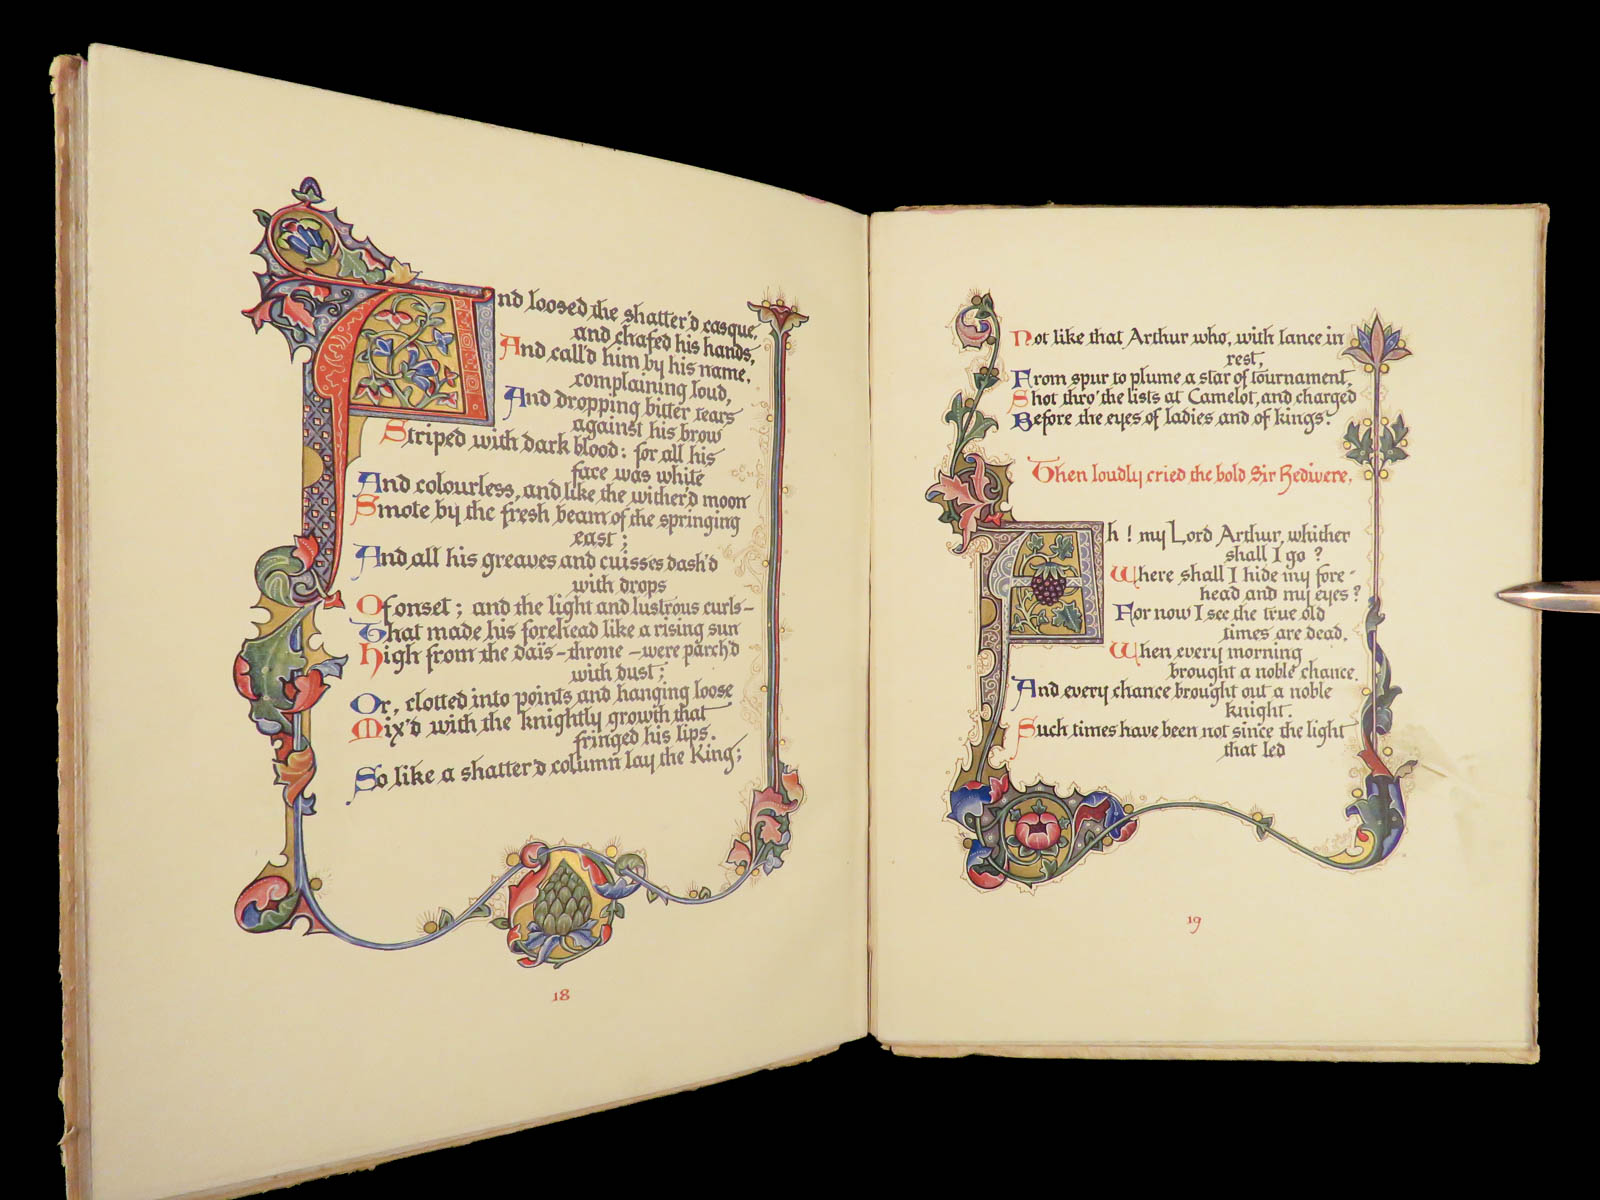 And loosed the shatter'd casque,
and chafed his hands,
And call'd him by his name,
complaining loud,
And dropping bitter tears
against his brow
Striped with dark blood: for all his
face was white
And colourless, and like the wither'd moon
Smote by the fresh beam of the springing
east;
And all his greaves and cuisses dash'd
with drops
Of onset; and the light and lustrous curls—
That made his forehead like a rising sun
High from the daïs-throne—were parch'd
with dust;
Or, clotted into points and hanging loose
Mix'd with the knightly growth that
fringed his lips.
So like a shatter'd column lay the King;
18
Not like that Arthur who, with lance in
rest,
From spur to plume a star of tournament,
Shot thro' the lists at Camelot, and charged
Before the eyes of ladies and of kings.
Then loudly cried the bold Sir Bedivere,
Ah! my Lord Arthur, whither
shall I go?
Where shall I hide my fore-
head and my eyes?
For now I see the true old
times are dead,
When every morning
brought a noble chance,
And every chance brought out a noble
knight.
Such times have been not since the light
that led
19